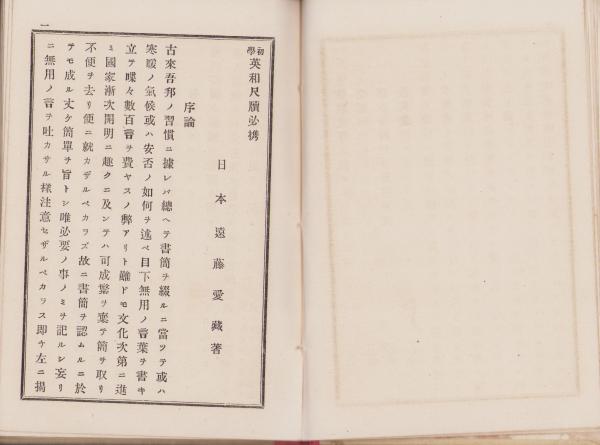 初學英和尺牘必携
日本 遠藤愛藏著
序論
古來吾邦ノ習慣ニ據レバ總ヘテ書簡ヲ綴ルニ當ツテ或ハ
寒暖ノ氣候或ハ安否ノ如何ヲ述ベ目下無用ノ言葉ヲ書キ
立テ喋々數百言ヲ費ヤスノ弊アリト雖ドモ文化次第ニ進
ミ國家漸次開明ニ趣クニ及ンテハ可成繁ヲ棄テ簡ヲ取リ
不便ヲ去リ便ニ就カザルベカラズ故ニ書簡ヲ認ムルニ於
テモ成ル丈ケ簡單ヲ旨トシ唯必要ノ事ノミヲ記ルシ妄リ
ニ無用ノ言ヲ吐カサル樣注意セザルベカラス即ケ左ニ揚
一